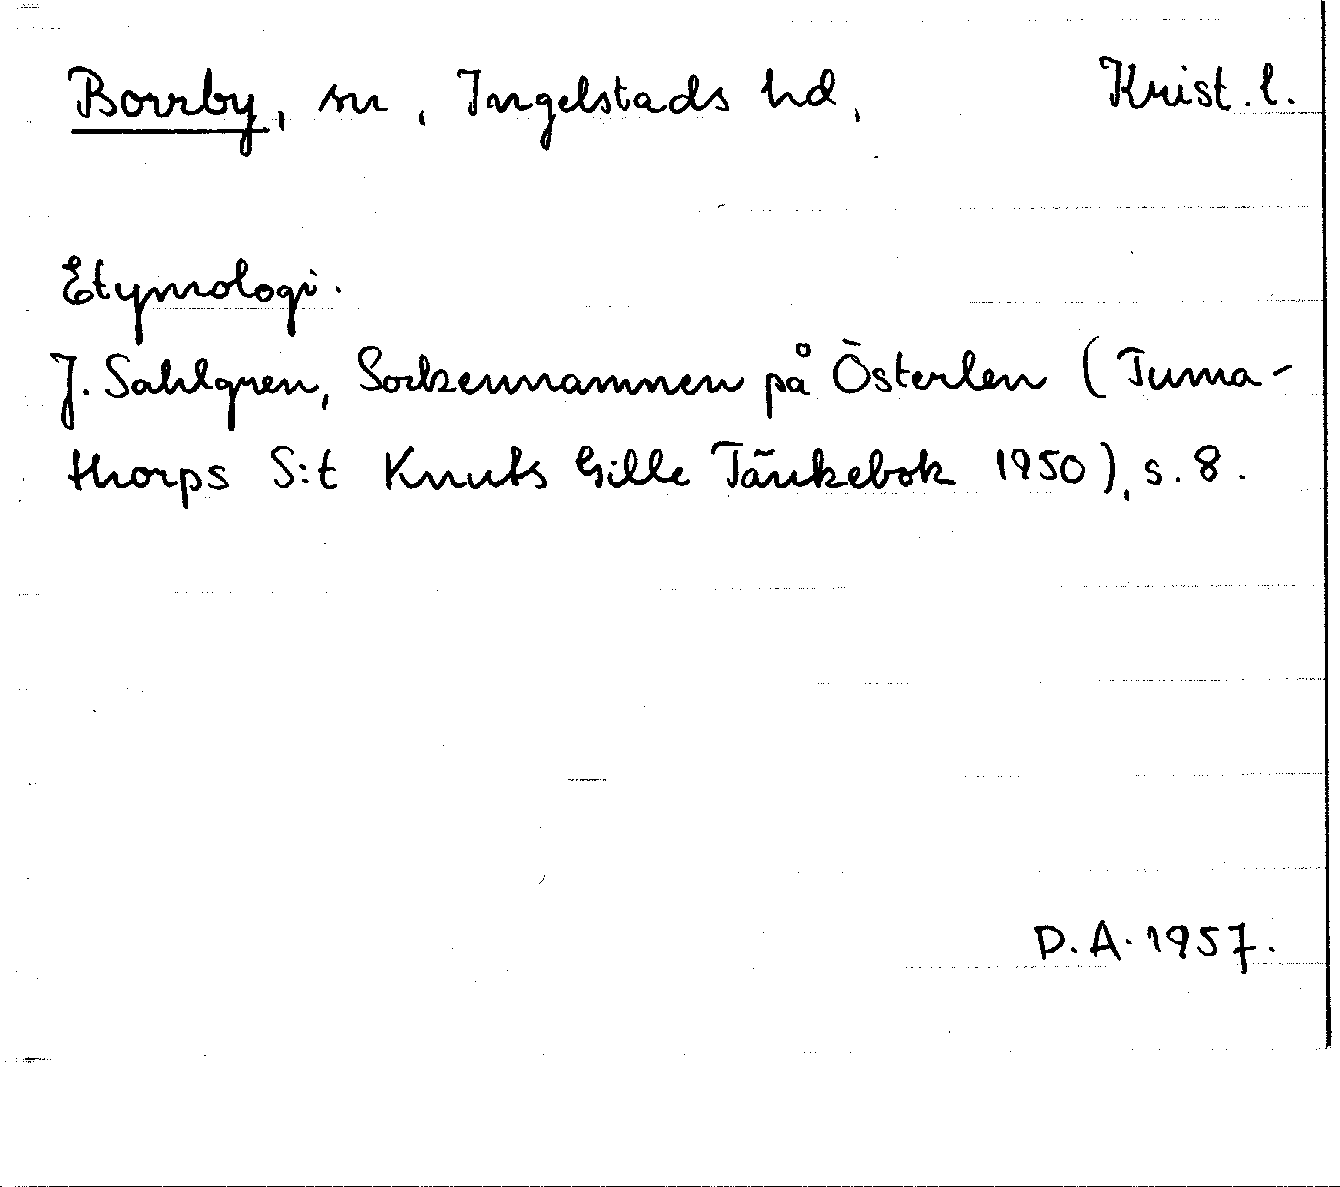 Borrby, sn, Ingelstads hd, Krist. l.
Etymologi.
J. Sahlgren, Sockennamnen på Österlen (Tuma-
thorps S:t Knuts Gille Tänkebok 1950), s. 8.
D. A. 1957.